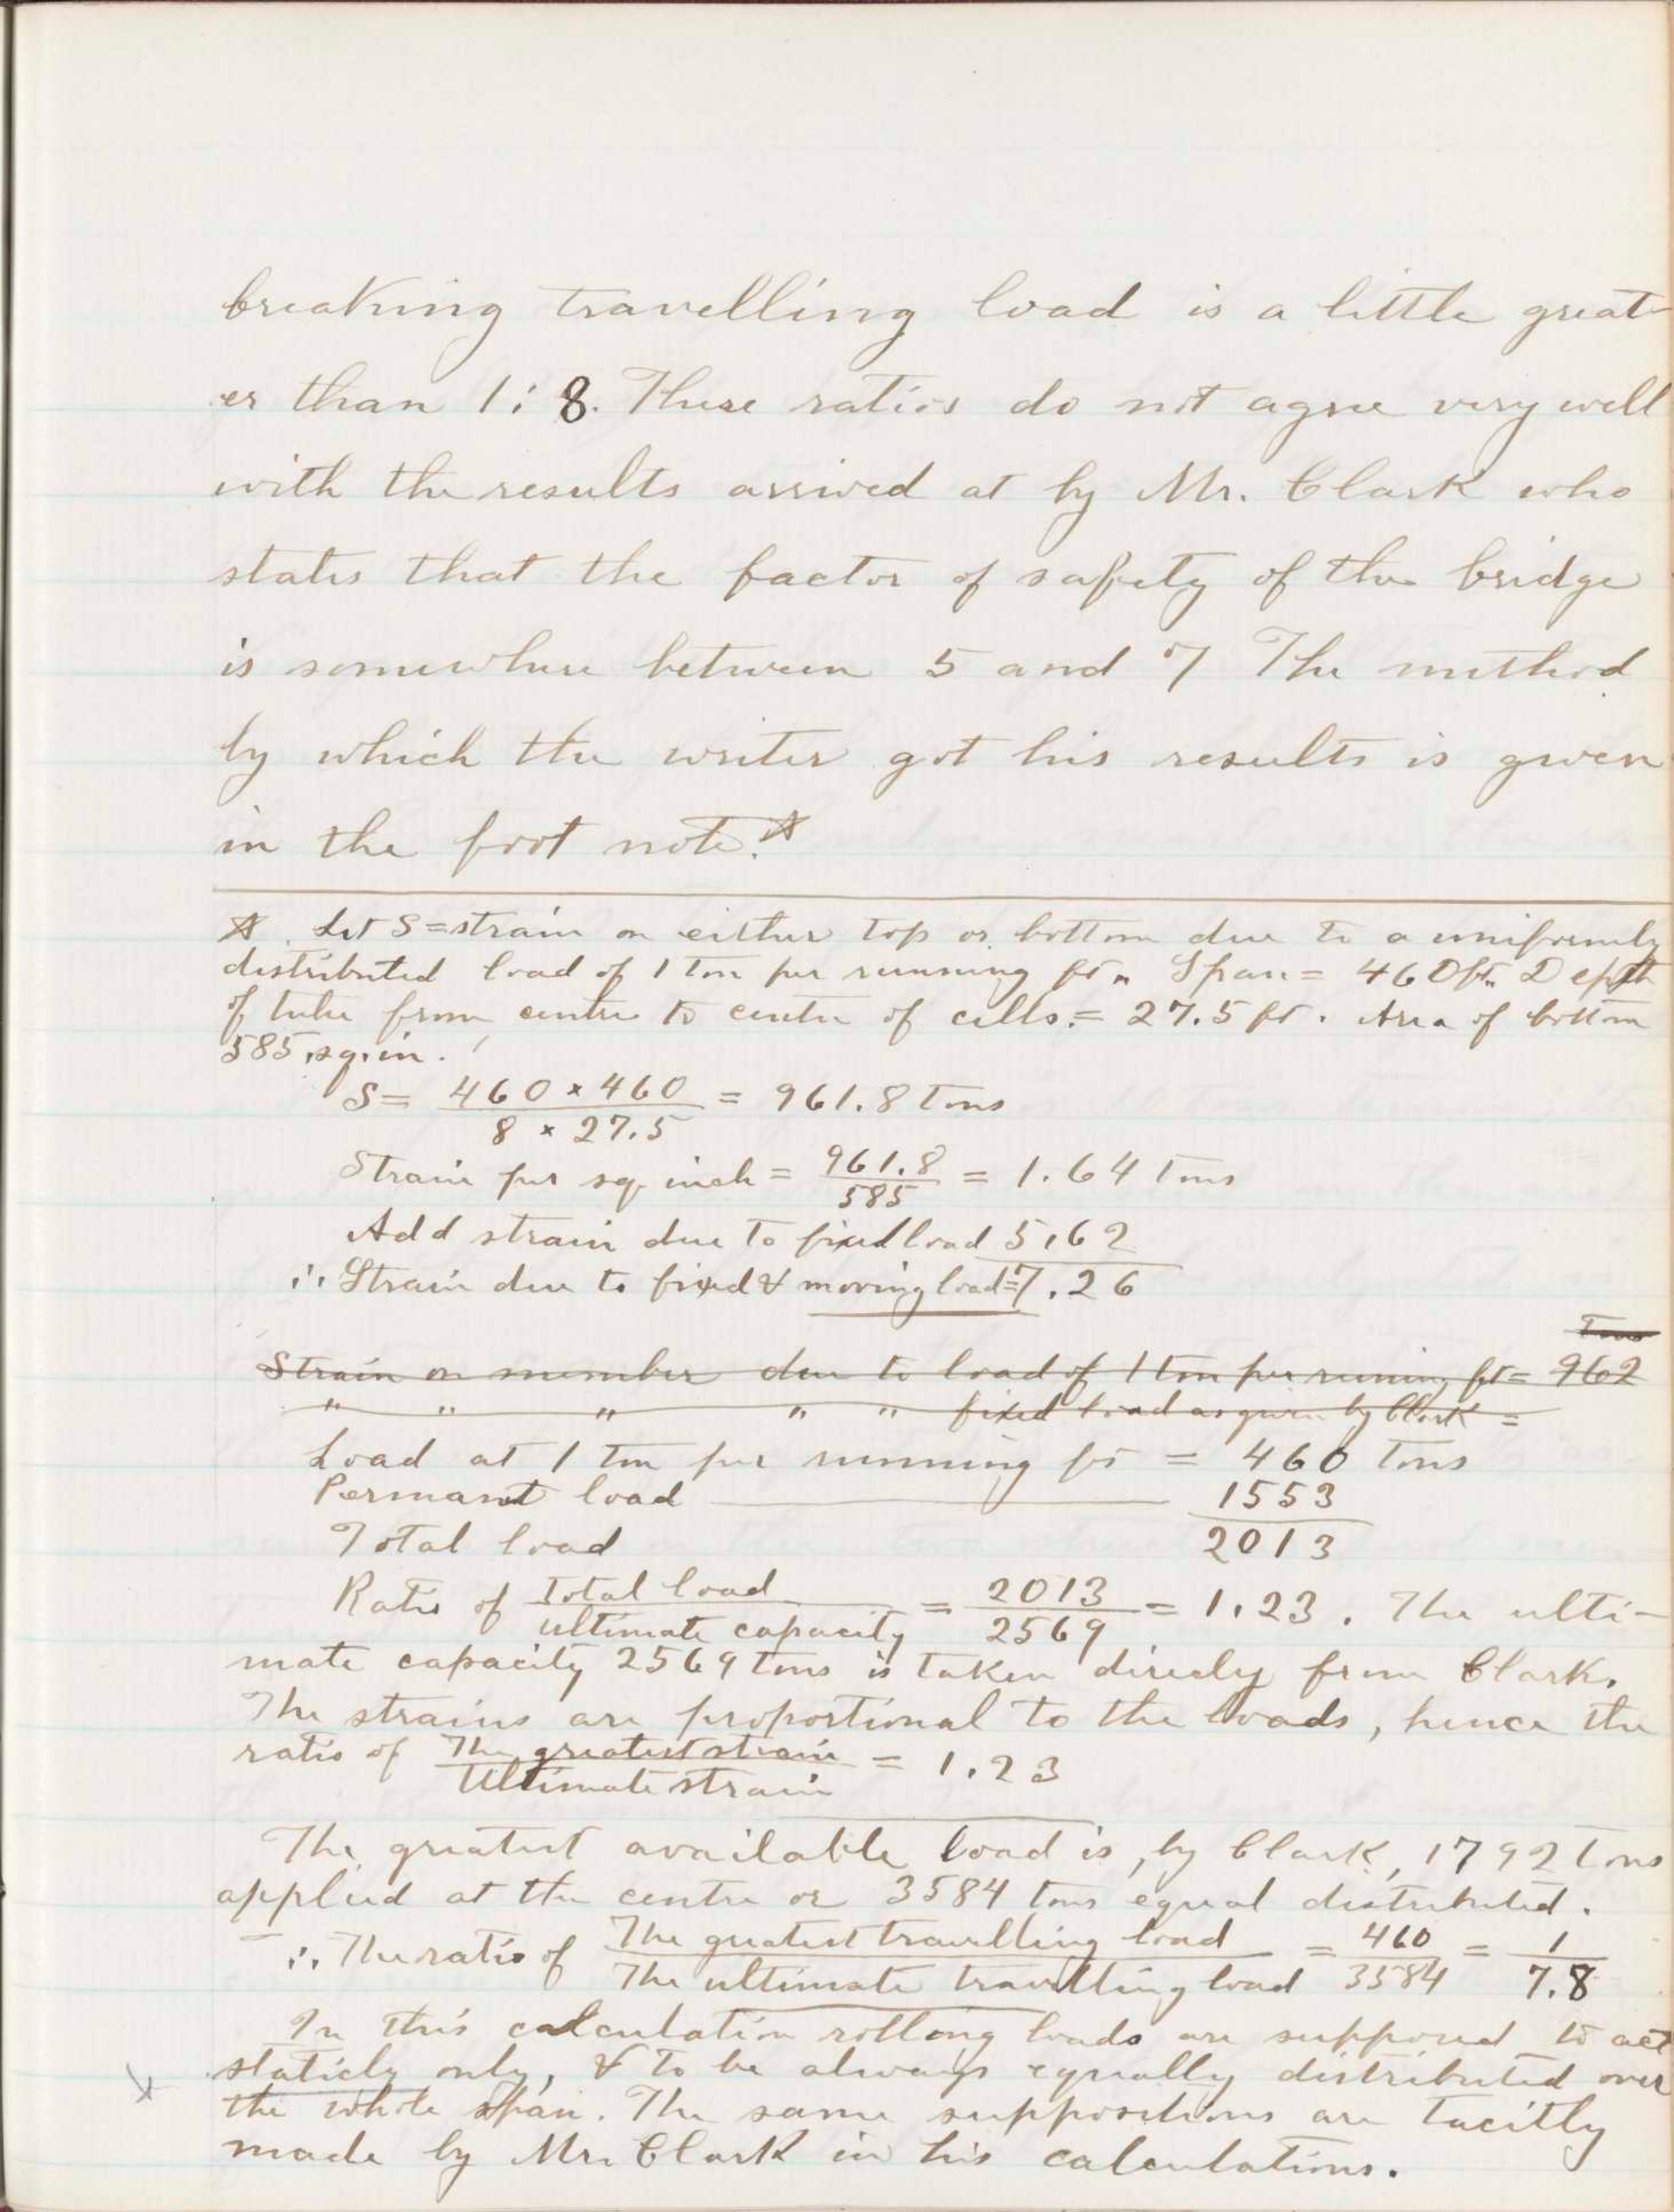 breaking travelling load is a little great-
er than 1:8. These ratios do not agree very well
with the results arrived at by Mr. Clark who
states that the factor of safety of the bridge
is somewhere between 5 and 7 The method
by which the writer got his results is given
in the foot note.*
* Let S = strain on either top or bottom due to a uniformly
distributed load of 1 ton per running ft. Span = 460 ft. Depth
of tube from centre to centre of cells = 27.5 ft. Area of bottom
585 sq. in.
S = 460 × 460 / 8 × 27.5 = 961.8 Tons
Strain per sq. inch = 961.8 / 585 = 1.64 Tons
Add strain due to fixed load 5.62
∴ Strain due to fixed & moving load = 7.26
Tons
Strain on member due to load of 1 ton per runing ft = 962
" " " " " fixed load as given by Clark =
Load at 1 ton per running ft = 460 Tons
Permant load 1553
Total load 2013
Ratio of Total load / ultimate capacity = 2013 / 2569 = 1.23. The ulti-
mate capacity 2569 tons is taken direcly from Clark.
The strains are proportional to the loads, hence the
ratio of The greatest strain / Ultimate strain = 1.23
The greatest available load is, by Clark, 1792 Tons
applied at the centre or 3584 tons equal distributed.
∴ The ratio of The greatest travelling load / The ultimate travelling load = 460 / 3584 = 1 / 7.8
In this calculation rolling loads are supposed to act
staticly only, & to be always equally distributed over
the whole span. The same suppositions are tacitly
made by Mr. Clark in his calculations.